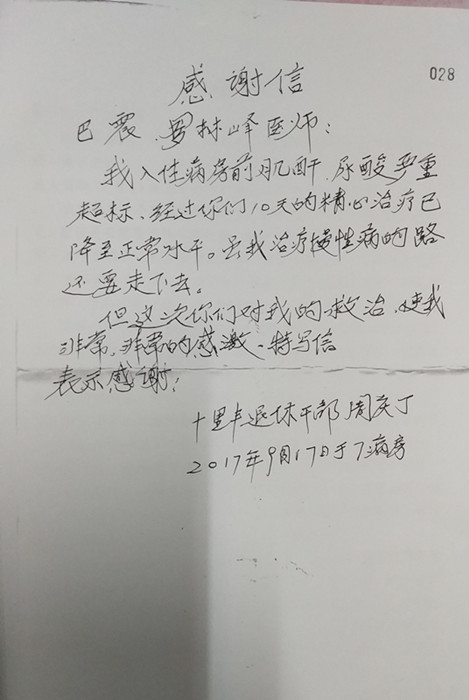 028
感谢信
巴震、罗林峰医师：
我入住病房前肌酐、尿酸严重
超标、经过你们10天的精心治疗已
降至正常水平。虽我治疗慢性病的路
还要走下去。
但这次你们对我的救治，使我
非常、非常的感激、特写信
表示感谢；
十里丰退休干部周庆丁
2017年9月17日于7病房